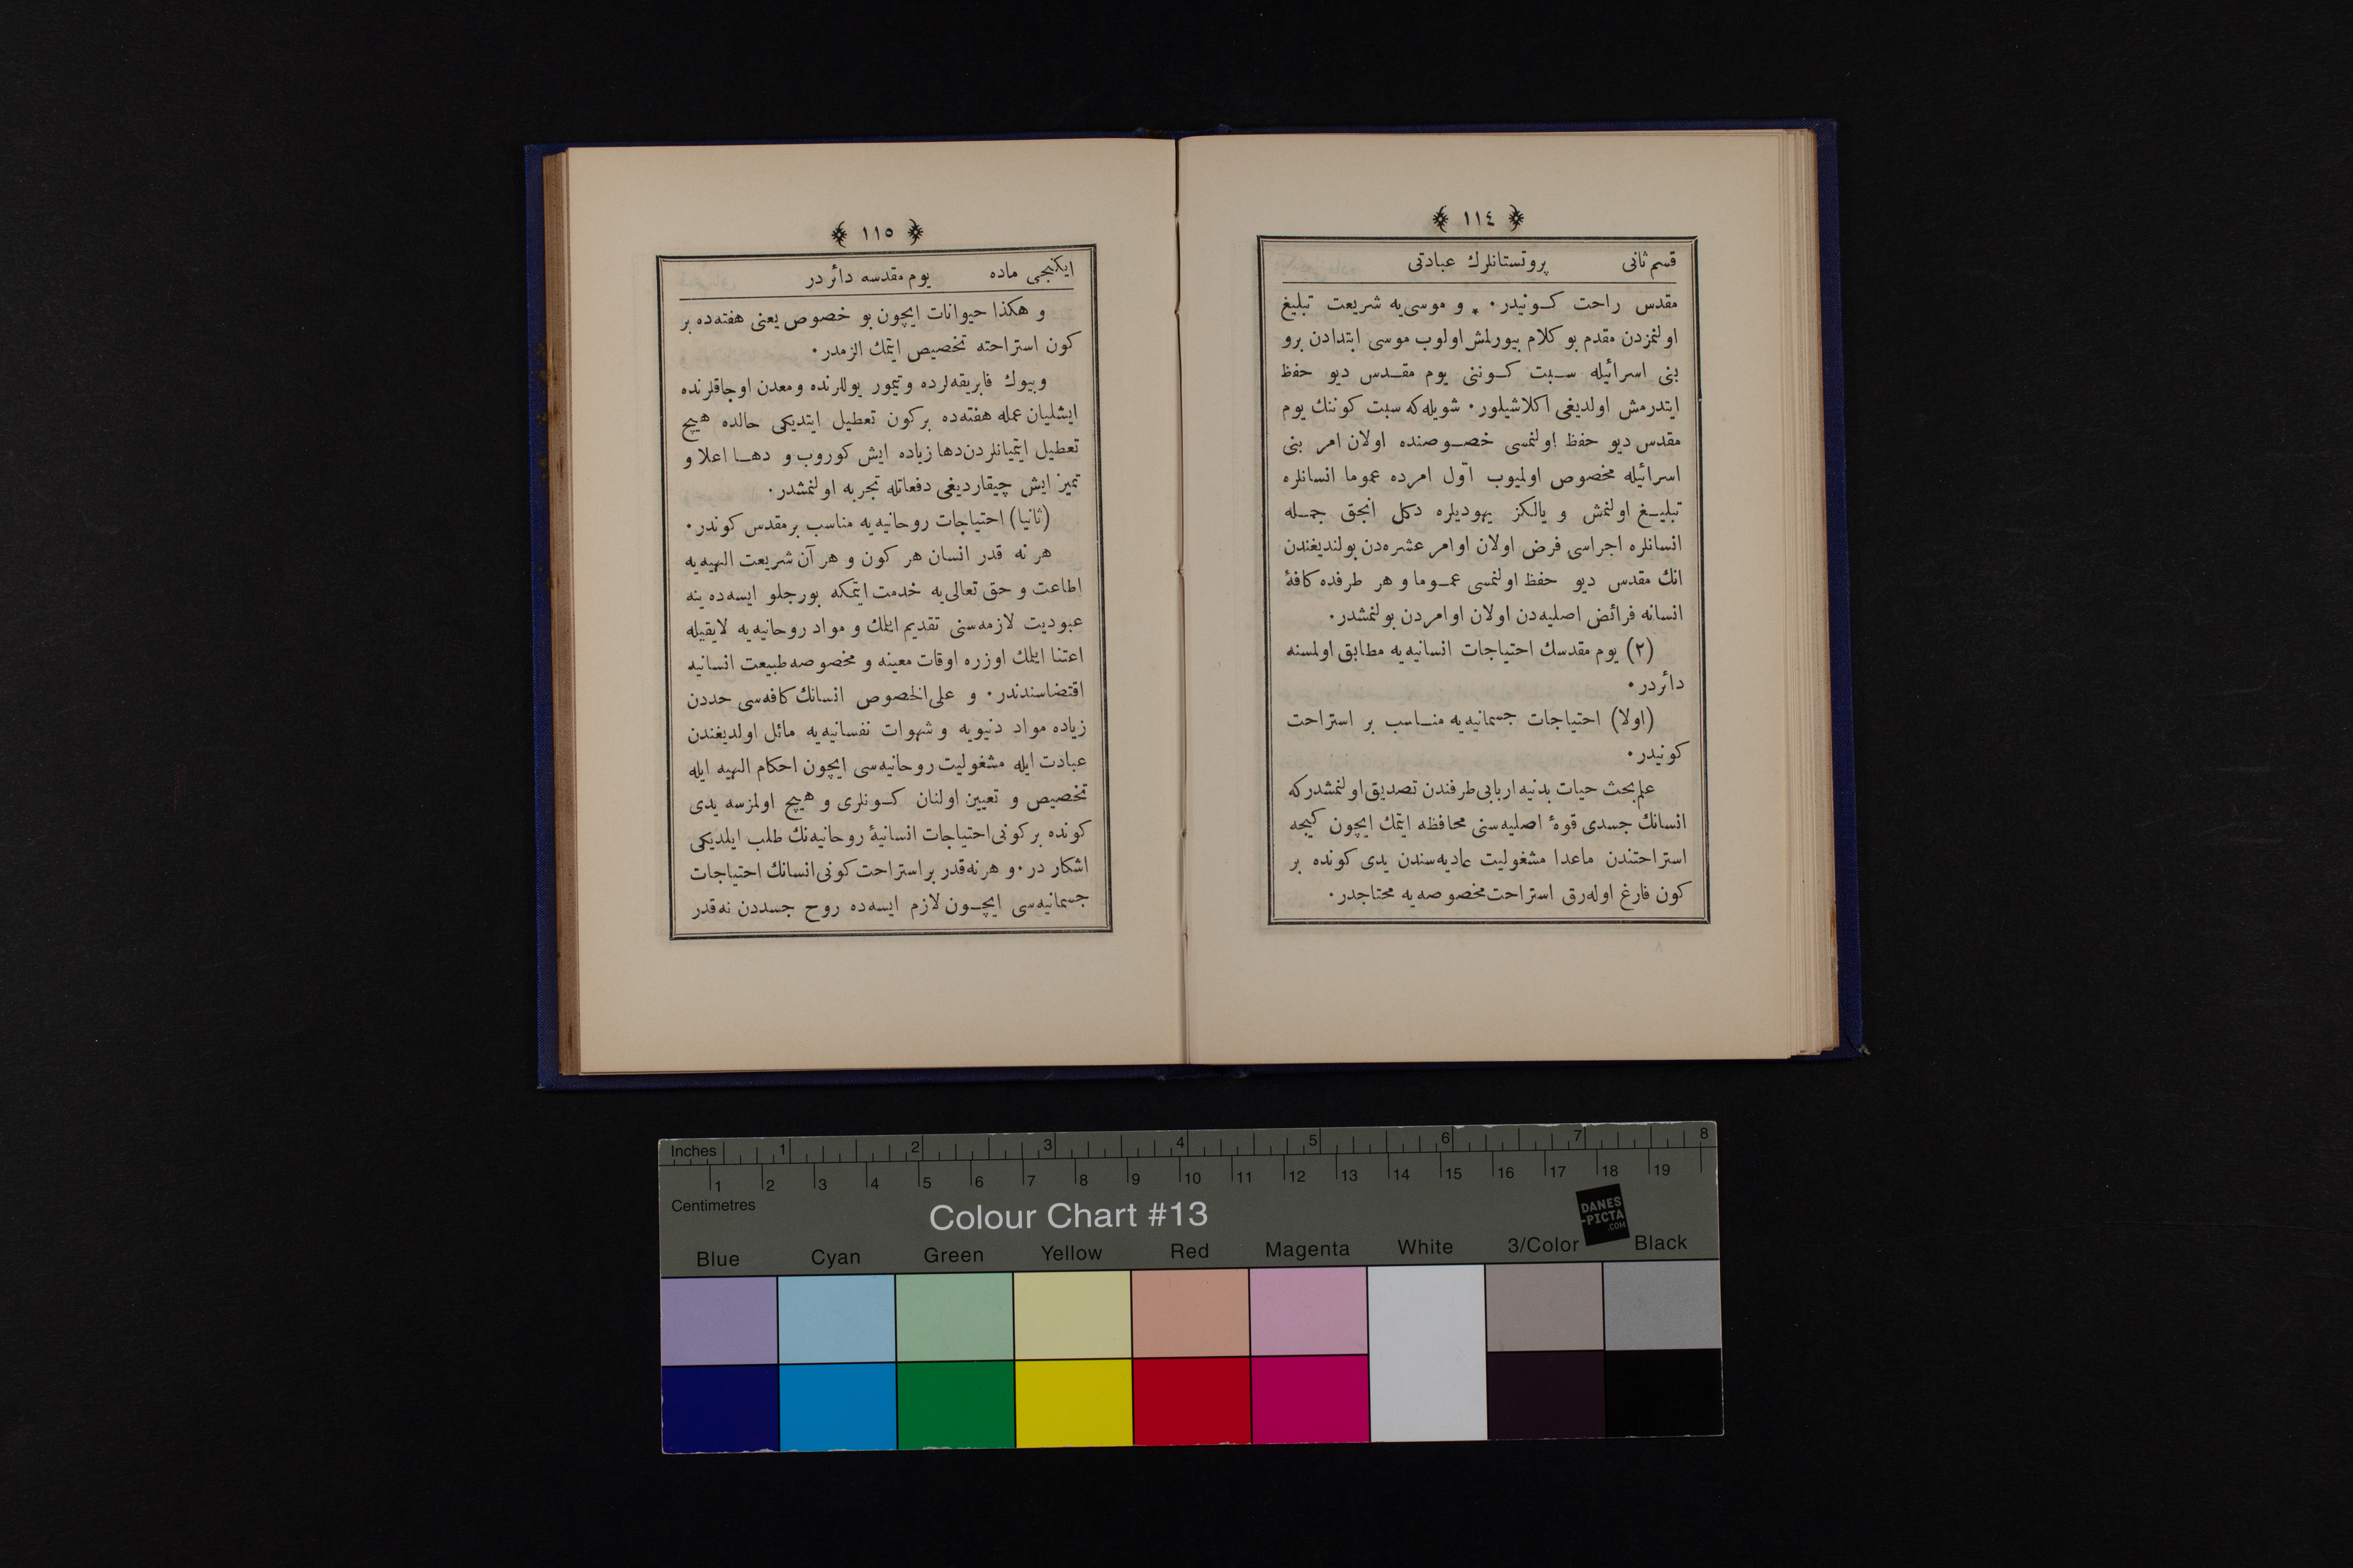 ١١٤
قسم ثانی پروتستانلرك عبادتی
مقدس راحت كونيدر٠ ٭ و موسی‌یه شریعت تبلیغ
اولنمزدن مقدم بو كلام بیورلمش اولوب موسی ابتدادن برو
بنی اسرائیله سبت كوننی یوم مقدس دیو حفظ
ایتدرمش اولدیغی اكلاشیلور٠ شویله‌كه سبت كوننك یوم
مقدس دیو حفظ اولنمسی خصوصنده اولان امر بنی
اسرائیله مخصوص اولمیوب اوّل امرده عموما انسانلره
تبلیغ اولنمش و یالكز یهودیلره دكل انجق جمله
انسانلره اجراسی فرض اولان اوامر عشره‌دن بولندیغندن
انك مقدس دیو حفظ اولنمسی عموما و هر طرفده كافۀ
انسانه فرائض اصلیه‌دن اولان اوامردن بولنمشدر٠
(٢) یوم مقدسك احتیاجات انسانیه‌یه مطابق اولمسنه
دائردر٠
(اولا) احتیاجات جسمانیه‌یه مناسب بر استراحت
كونیدر٠
علم بحث حیات بدنیه اربابی طرفندن تصدیق اولنمشدركه
انسانك جسدی قوۀ اصلیه‌سنی محافظه ایتمك ایچون كیجه
استراحتندن ماعدا مشغولیت عادیه‌سندن یدی كونده بر
كون فارغ اوله‌رق استراحت مخصوصه‌یه محتاجدر٠
١١٥
ایكنجی ماده یوم مقدسه دائر در
و هكذا حیوانات ایچون بو خصوص یعنی هفته‌ده بر
كون استراحته تخصیص ایتمك الزمدر٠
و بیوك فابریقه‌لرده و تیمور یوللرنده و معدن اوجاقلرنده
ایشلیان عمله هفته‌ده بر كون تعطیل ایتدیكی حالده هیچ
تعطیل ایتمیانلردن دها زیاده ایش كوروب و دها اعلا و
تمیز ایش چیقاردیغی دفعاتله تجربه اولنمشدر٠
(ثانیا) احتیاجات روحانیه‌یه مناسب بر مقدس كوندر٠
هر نه قدر انسان هر كون و هر آن شریعت الهیه‌یه
اطاعت و حق تعالی‌یه خدمت ایتمكه بورجلو ایسه‌ده ینه
عبودیت لازمه‌سنی تقدیم ایلمك و مواد روحانیه‌یه لایقیله
اعتنا ایلمك اوزره اوقات معینه و مخصوصه طبیعت انسانیه
اقتضاسندندر٠ و علی‌الخصوص انسانك كافه‌سی حددن
زیاده مواد دنیویه و شهوات نفسانیه‌یه مائل اولدیغندن
عبادت ایله مشغولیت روحانیه‌سی ایچون احكام الهیه ایله
تخصیص و تعیین اولنان كونلری و هیچ اولمزسه یدی
كونده بر كونی احتیاجات انسانیۀ روحانیه‌نك طلب ایلدیكی
اشكار در٠ و هر نه‌قدر بر استراحت كونی انسانك احتیاجات
جسمانیه‌سی ایچون لازم ایسه‌ده روح جسددن نه‌قدر
Inches 1 2 3 4 5 6 7 8
1 2 3 4 5 6 7 8 9 10 11 12 13 14 15 16 17 18 19
Centimetres
Colour Chart #13
DANES
-PICTA
.COM
Blue Cyan Green Yellow Red Magenta White 3/Color Black